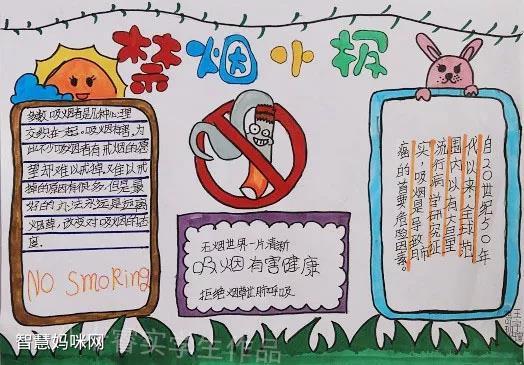 禁烟小报
多数吸烟者是几种心理
交织在一起。吸烟有害,为
此不少吸烟者有戒烟的愿
望却难以戒掉,难以戒
掉的原因有很多,但是最
好的办法永远是远离
烟草,改变对吸烟的态
度.
NO SmoKing
无烟世界一片清新
吸烟有害健康
拒绝烟草肺呼吸
自20世纪50年
代以来,全球范
围内以有大量
流行病学研究证
实,吸烟是导致肺
癌的首要危险因素。
智慧妈咪网
睿实学生作品